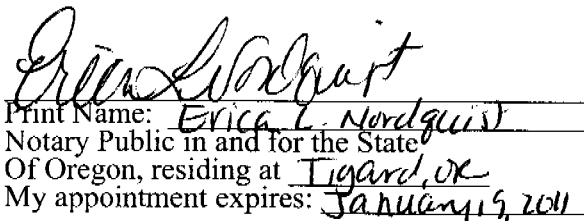 Erica L Nordquist
Print Name: Erica L. Nordquist
Notary Public in and for the State
Of Oregon, residing at Tigard, OR
My appointment expires: January 9, 2011